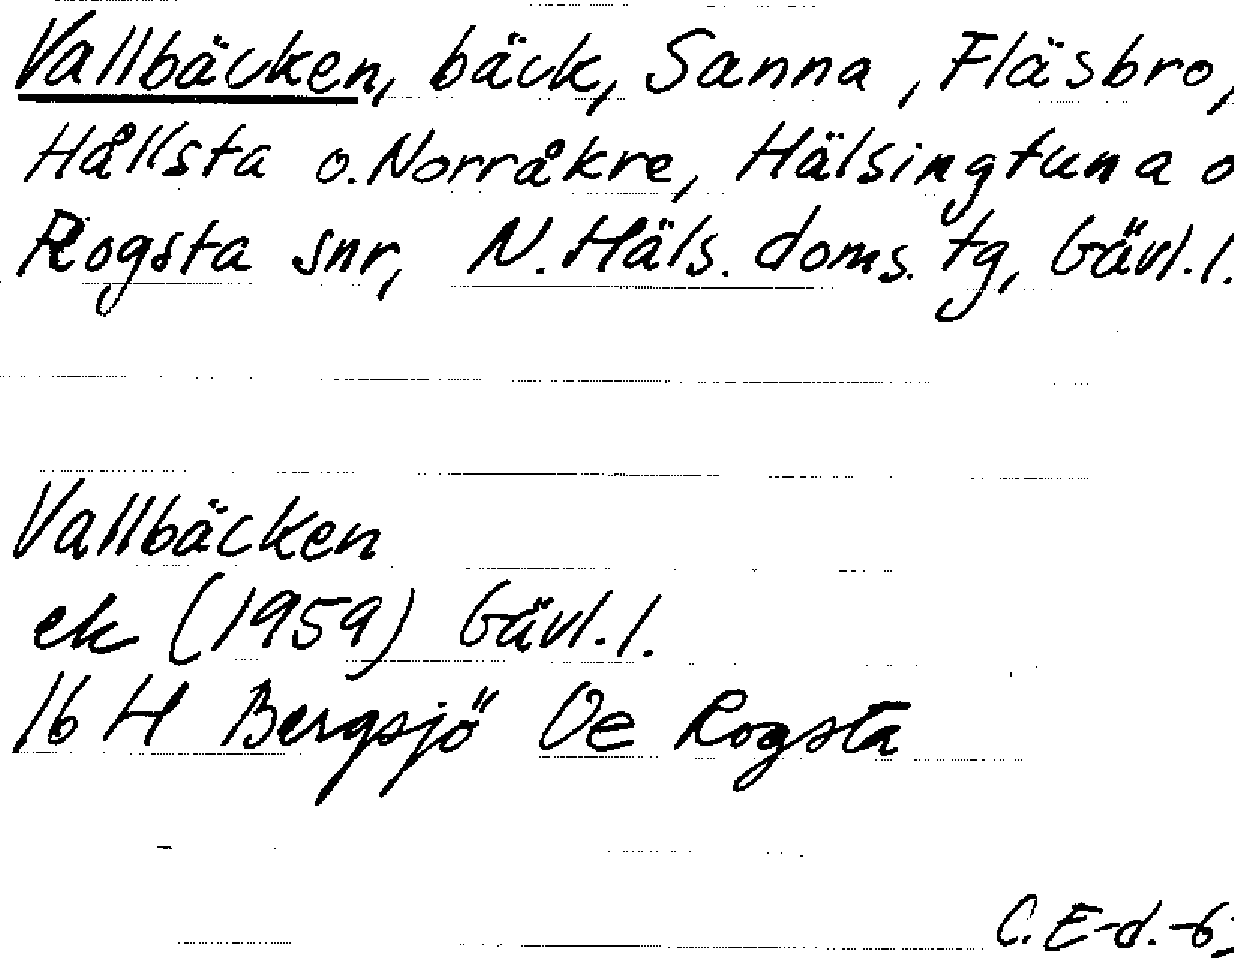 Vallbäcken, bäck, Sanna, Fläsbro,
Hållsta o. Norråkre, Hälsingtuna o
Rogsta snr, N. Häls. doms. tg, Gävl. l.
Vallbäcken
ek (1959) Gävl. l.
16 H Bergsjö Oe Rogsta
C. E-d.